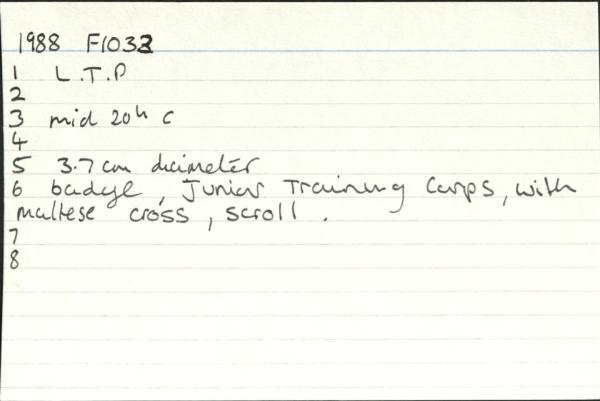 1988 F1032
1 L.T.P
2
3 mid 20th c
4
5 3.7 cm diameter
6 badge, Junior Training Corps, with
maltese cross, scroll.
7
8